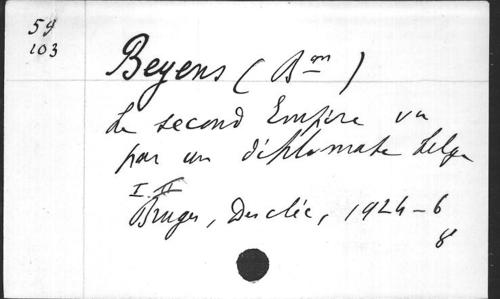 59
103
Beyens (Bon)
Le second Empire vu
par un diplomate belge
I. II
Bruges, Desclée, 1924-6
8